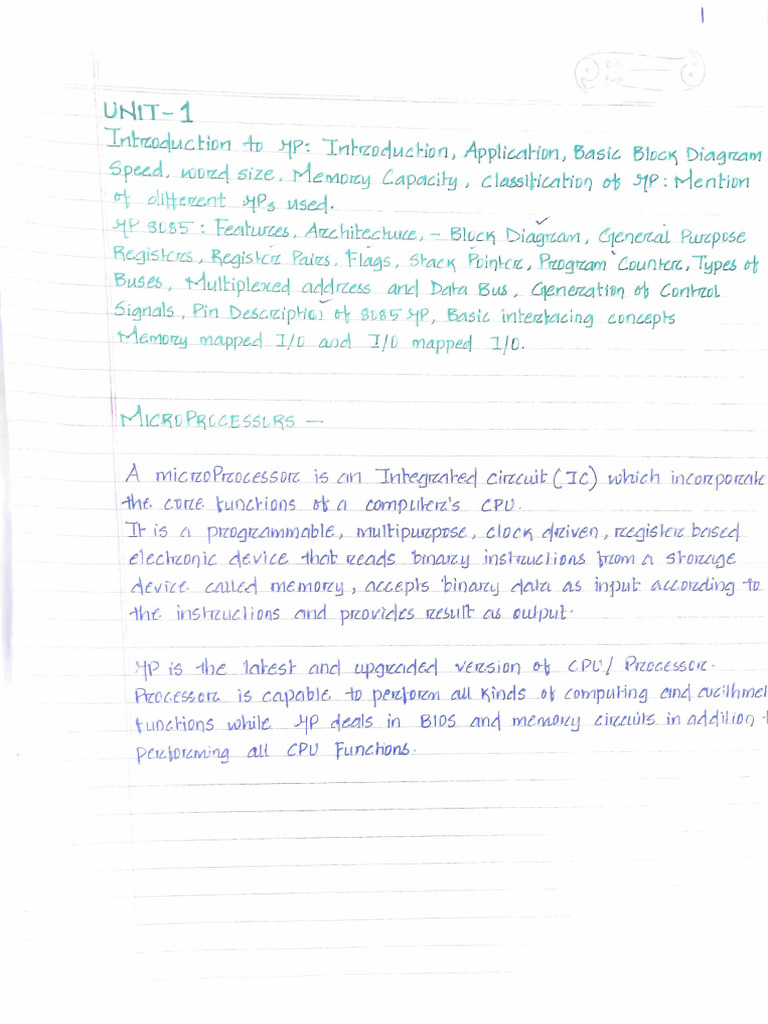 1
UNIT-1
Introduction to μP: Introduction, Application, Basic Block Diagram
Speed, word size, Memory Capacity, classification of μP: Mention
of different μPs used.
μP 8085: Features, Architecture, - Block Diagram, General Purpose
Registers, Register Pairs, Flags, Stack Pointer, Program Counter, Types of
Buses, Multiplexed address and Data Bus, Generation of Control
Signals, Pin Description of 8085 μP, Basic interfacing concepts
Memory mapped I/O and I/O mapped I/O.
MICROPROCESSORS -
A microProcessor is an Integrated circuit (IC) which incorporate
the core functions of a computer's CPU.
It is a programmable, multipurpose, clock driven, register based
electronic device that reads binary instructions from a storage
device called memory, accepts binary data as input according to
the instructions and provides result as output.
μP is the latest and upgraded version of CPU/Processor.
Processor is capable to perform all kinds of computing and arithmet
functions while μP deals in BIOS and memory circuits in addition t
performing all CPU Functions.